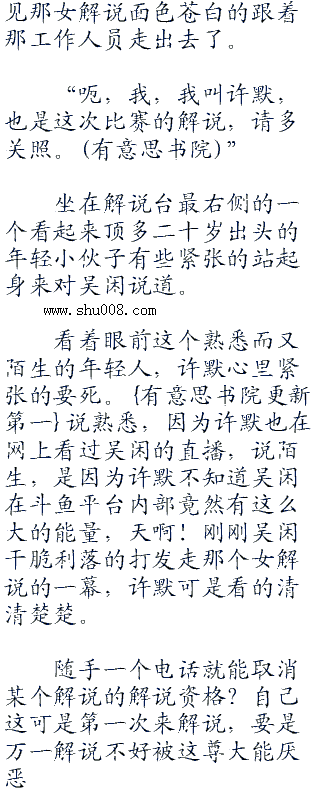 见那女解说面色苍白的跟着
那工作人员走出去了。
“呃，我，我叫许默，
也是这次比赛的解说，请多
关照。(有意思书院)”
坐在解说台最右侧的一
个看起来顶多二十岁出头的
年轻小伙子有些紧张的站起
身来对吴闲说道。
www.shu008.com
看着眼前这个熟悉而又
陌生的年轻人，许默心里紧
张的要死。{有意思书院更新
第一}说熟悉，因为许默也在
网上看过吴闲的直播，说陌
生，是因为许默不知道吴闲
在斗鱼平台内部竟然有这么
大的能量，天啊！刚刚吴闲
干脆利落的打发走那个女解
说的一幕，许默可是看的清
清楚楚。
随手一个电话就能取消
某个解说的解说资格？自己
这可是第一次来解说，要是
万一解说不好被这尊大能厌
恶